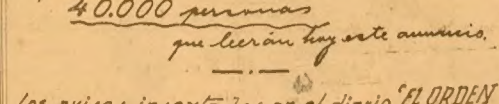 40.000 personas
que leerán hoy este anuncio.
Los avisos insertados en el diario "EL ORDEN